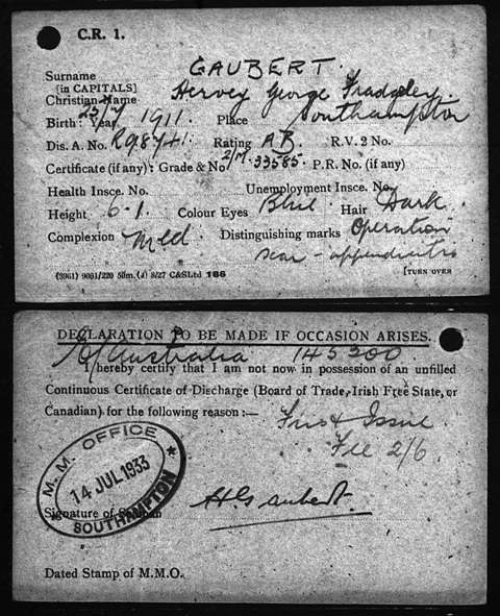 C.R. 1.
Surname GAUBERT.
[in CAPITALS]
Christian Name Hervey George Fradgley.
Birth: Year 25/7 1911. Place Southampton
Dis. A. No. R98741. Rating AB. R.V. 2 No.
Certificate (if any): Grade & No 2/M. 33585. P.R. No. (if any)
Health Insce. No. Unemployment Insce. No.
Height 6-1. Colour Eyes Blue Hair Dark.
Complexion Med. Distinguishing marks Operation
scar - appendicitis
(3961) 9061/220 50m. (4) 8/27 C&SLtd 166 [TURN OVER
DECLARATION TO BE MADE IF OCCASION ARISES.
Australia 145300
I hereby certify that I am not now in possession of an unfilled
Continuous Certificate of Discharge (Board of Trade, Irish Free State, or
Canadian) for the following reason:— First Issue
Fee 2/6
M.M. OFFICE
14 JUL 1933
SOUTHAMPTON
Signature of Seaman H Gaubert.
Dated Stamp of M.M.O.